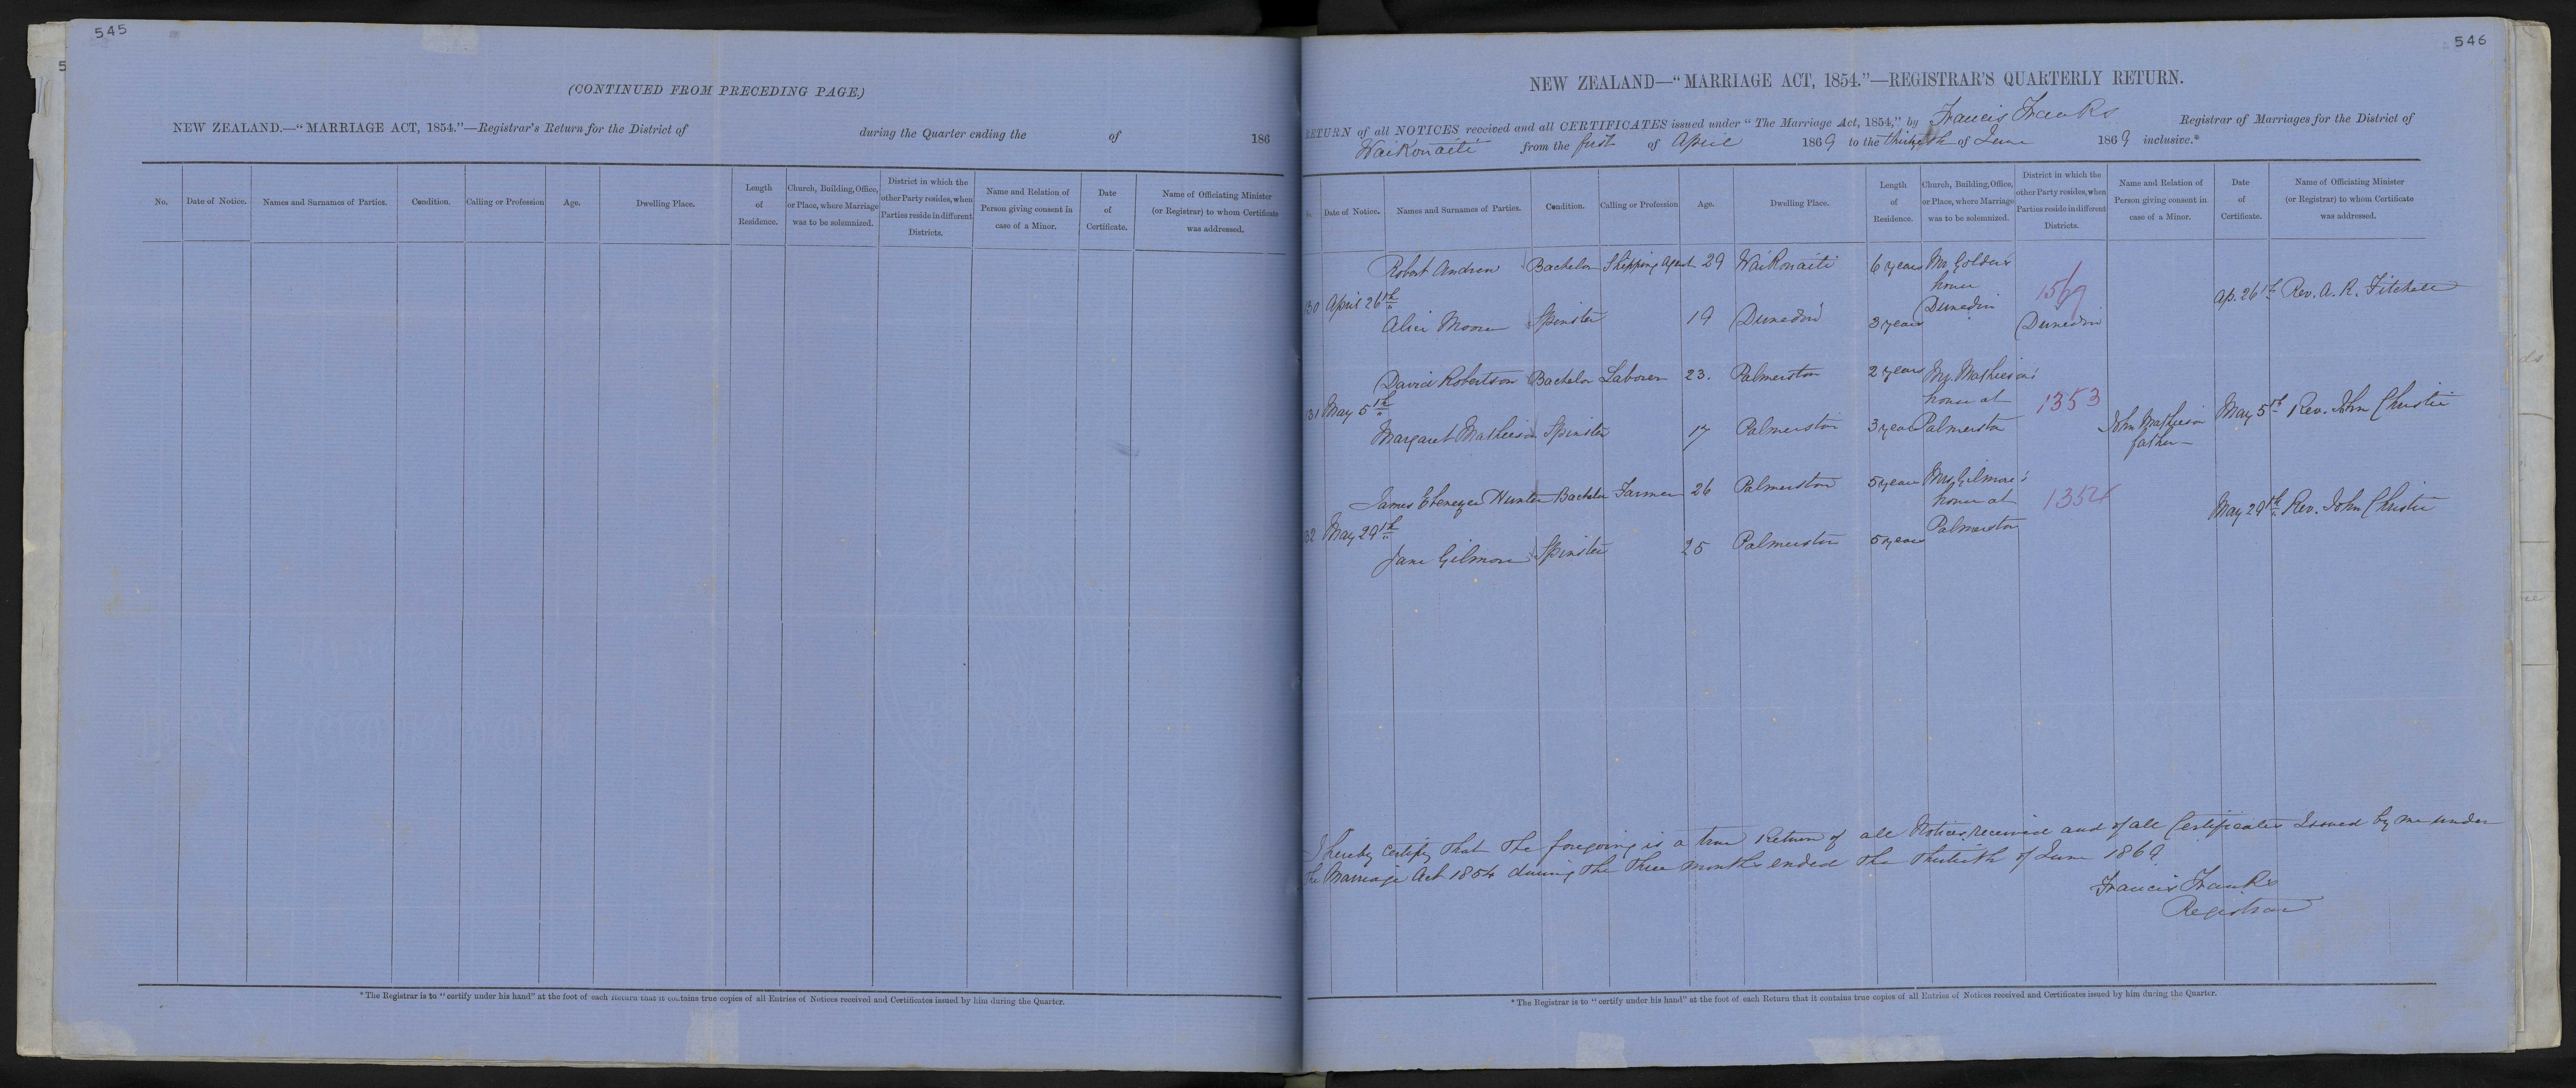 545
(CONTINUED FROM PRECEDING PAGE.)
NEW ZEALAND.—“MARRIAGE ACT, 1854.”—Registrar's Return for the District of during the Quarter ending the of 186
No. Date of Notice. Names and Surnames of Parties. Condition. Calling or Profession Age. Dwelling Place. Length of Residence. Church, Building, Office, or Place, where Marriage was to be solemnized. District in which the other Party resides, when Parties reside in different Districts. Name and Relation of Person giving consent in case of a Minor. Date of Certificate. Name of Officiating Minister (or Registrar) to whom Certificate was addressed.
* The Registrar is to “certify under his hand” at the foot of each Return that it contains true copies of all Entries of Notices received and Certificates issued by him during the Quarter.
546
NEW ZEALAND—“MARRIAGE ACT, 1854.”—REGISTRAR'S QUARTERLY RETURN.
RETURN of all NOTICES received and all CERTIFICATES issued under “The Marriage Act, 1854,” by Francis Franks Registrar of Marriages for the District of
Waikouaiti from the first of April 1869 to the thirtieth of June 1869 inclusive.*
Date of Notice. Names and Surnames of Parties. Condition. Calling or Profession Age. Dwelling Place. Length of Residence. Church, Building, Office, or Place, where Marriage was to be solemnized. District in which the other Party resides, when Parties reside in different Districts. Name and Relation of Person giving consent in case of a Minor. Date of Certificate. Name of Officiating Minister (or Registrar) to whom Certificate was addressed.
Robert Andrew Bachelor Shipping Agent 29 Waikouaiti 6 years Mr. Golder's
house
130 April 26th 1569 Ap. 26th Rev. A. R. Fitchett
Alice Moore Spinster 19 Dunedin 3 years Dunedin Dunedin
David Robertson Bachelor Laborer 23. Palmerston 2 years Mr. Mathieson's
house at
131 May 5th 1353 May 5th Rev. John Christie
Margaret Mathieson Spinster 17 Palmerston 3 years Palmerston John Mathieson
father
James Ebenezer Hunter Bachelor Farmer 26 Palmerston 5 years Mrs. Gilmore's
house at
132 May 29th 1354 May 29th Rev. John Christie
Palmerston
Jane Gilmore Spinster 25 Palmerston 5 years
I hereby certify that the foregoing is a true Return of all Notices received and of all Certificates Issued by me under
the Marriage Act 1854 during the three months ended the thirtieth of June 1869
Francis Franks
Registrar
* The Registrar is to “certify under his hand” at the foot of each Return that it contains true copies of all Entries of Notices received and Certificates issued by him during the Quarter.